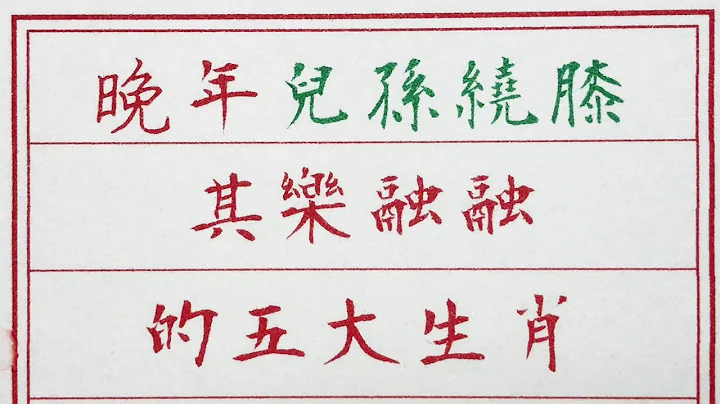 晚年兒孫繞膝
其樂融融
的五大生肖